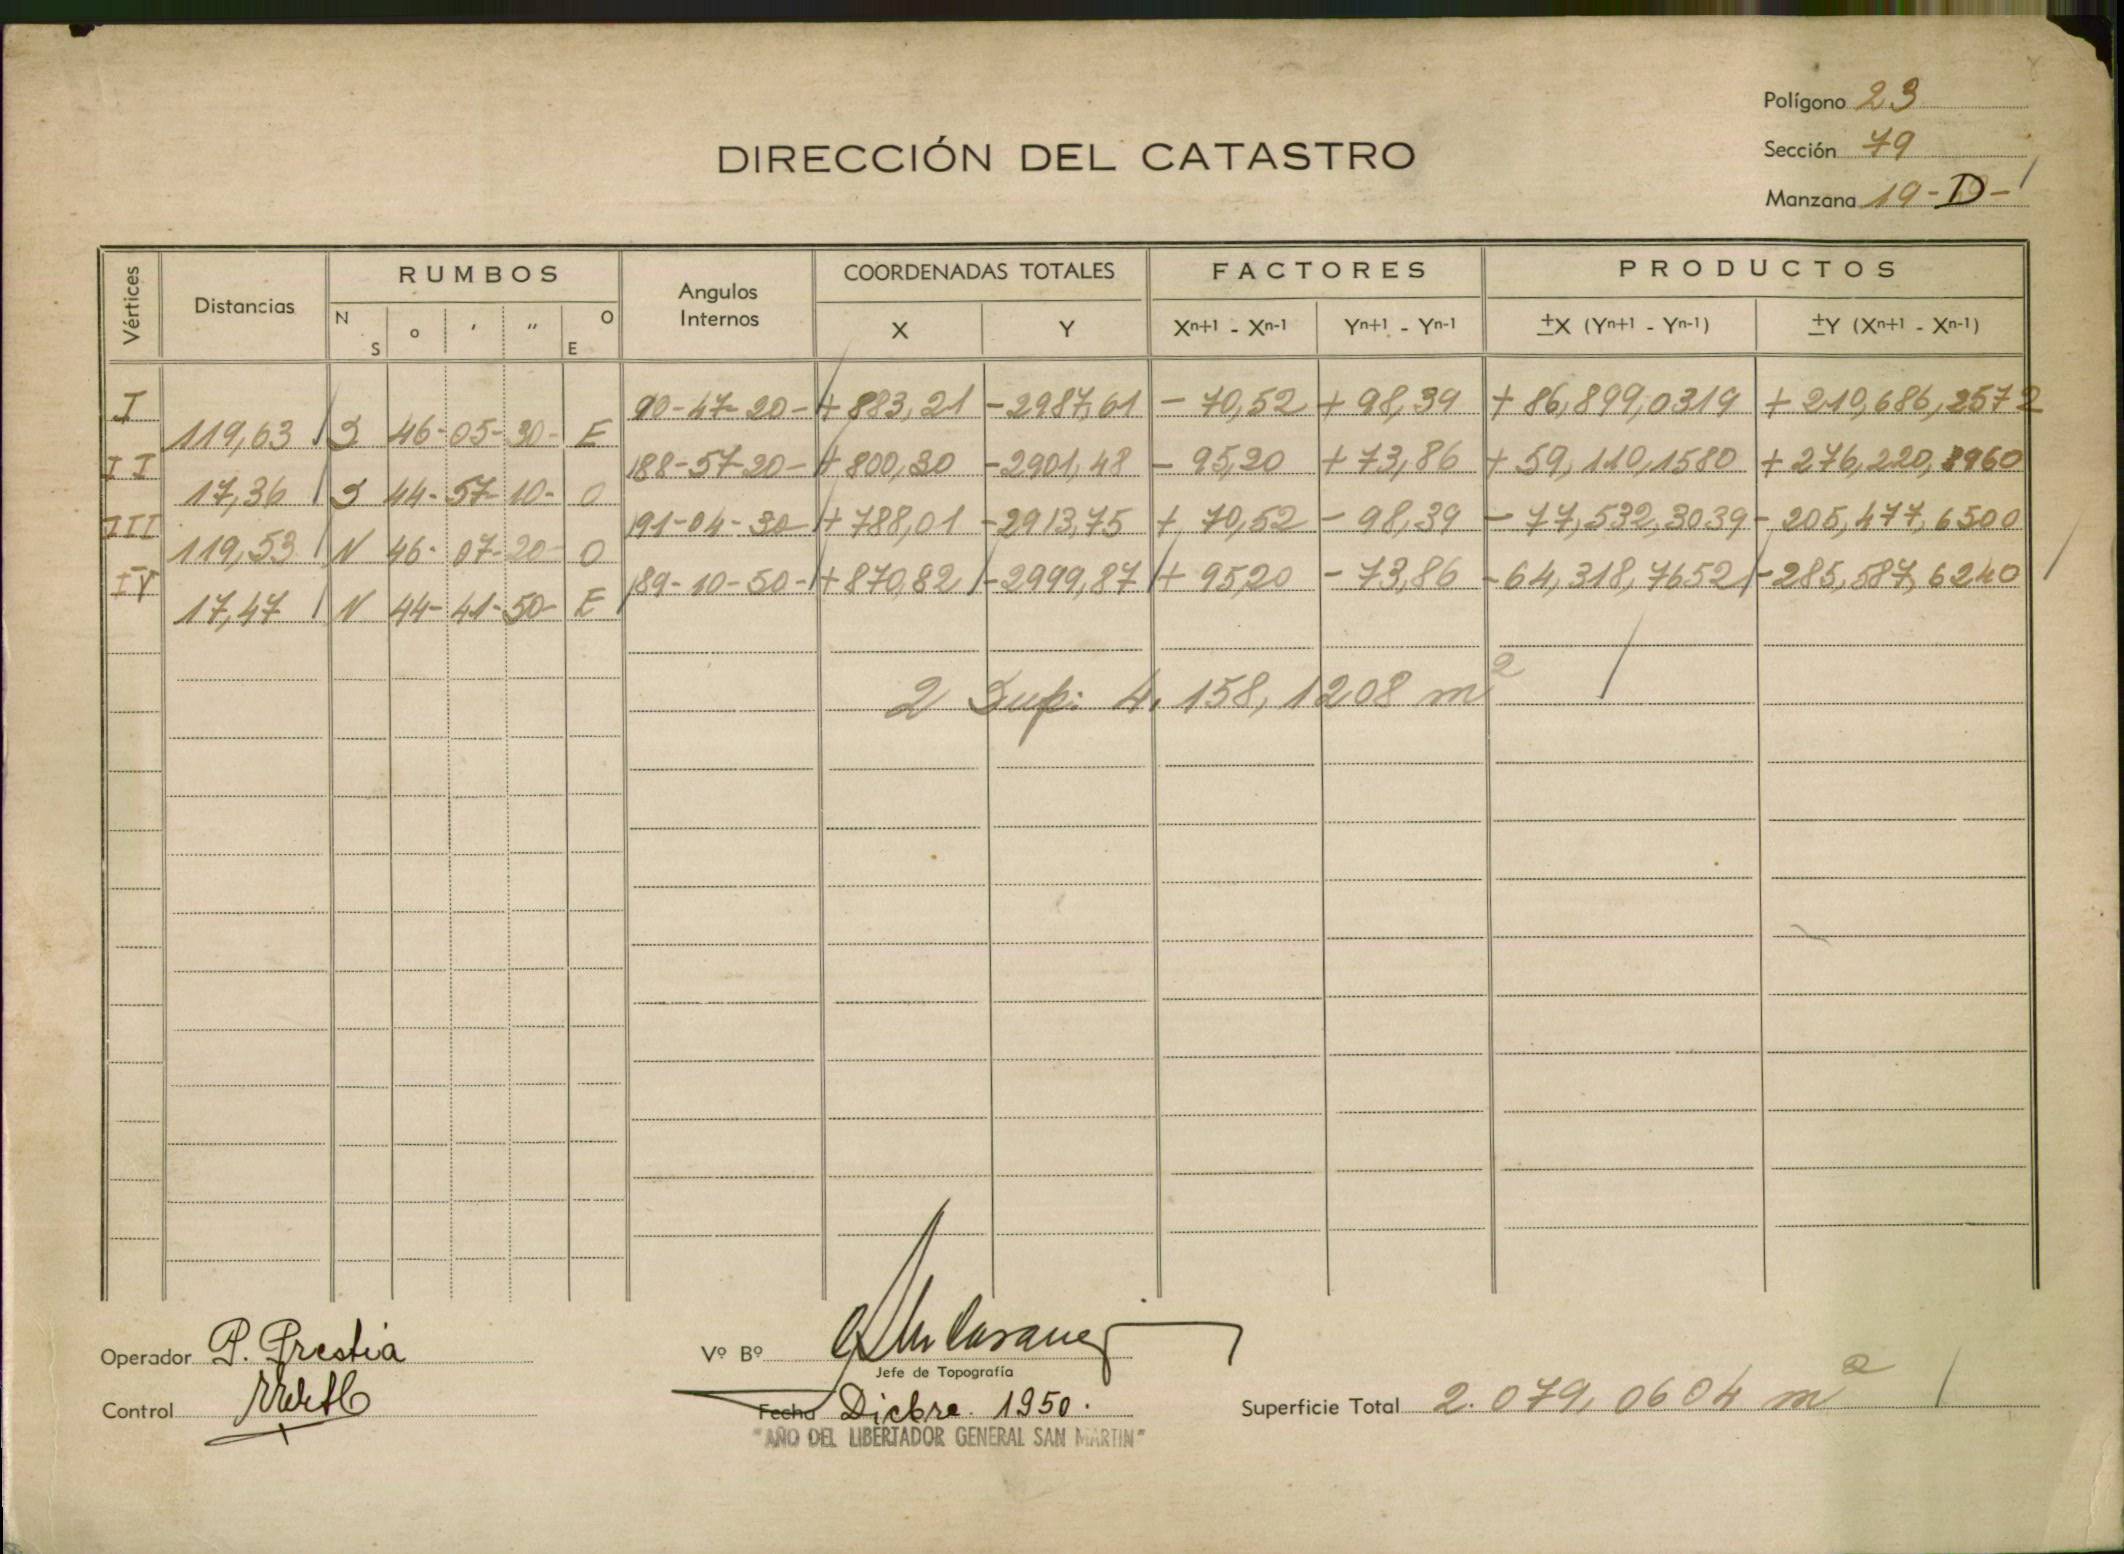 Polígono 23
DIRECCIÓN DEL CATASTRO
Sección 79
Manzana 19-D-
Vértices Distancias RUMBOS N S o ' " O E Angulos Internos COORDENADAS TOTALES X Y FACTORES Xn+1 - Xn-1 Yn+1 - Yn-1 PRODUCTOS ±X (Yn+1 - Yn-1) ±Y (Xn+1 - Xn-1)
I 90-47-20- +883,21 -2987,61 -70,52 +98,39 +86,899,0319 +210,686,2572
119,63 S 46-05-30- E
II 88-57-20- +800,30 -2901,48 -95,20 +73,86 +59,110,1580 +276,220,8960
17,36 S 44-57-10- O
III 91-04-30 +788,01 -2913,75 +70,52 -98,39 -77,532,3039 -205,477,6500
119,53 N 46-07-20- O
IV 89-10-50- +870,82 -2999,87 +95,20 -73,86 -64,318,7652 -285,587,6240
17,47 N 44-41-50- E
2 Sup: 4.158,1208 m2
Operador P. Prestia
Vº Bº
Jefe de Topografía
Control
Fecha Dicbre. 1950.
Superficie Total 2.079,0604 m2
"AÑO DEL LIBERTADOR GENERAL SAN MARTIN"